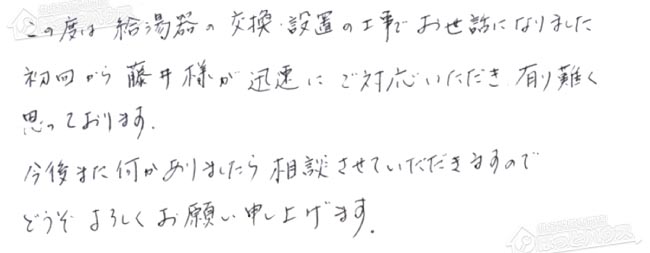 この度は 給湯器の 交換・設置の工事で お世話になりました
初回から 藤井様が 迅速に ご対応いただき 有り難く
思っております.
今後また何かありましたら 相談させていただきますので
どうぞ よろしく お願い申し上げます.